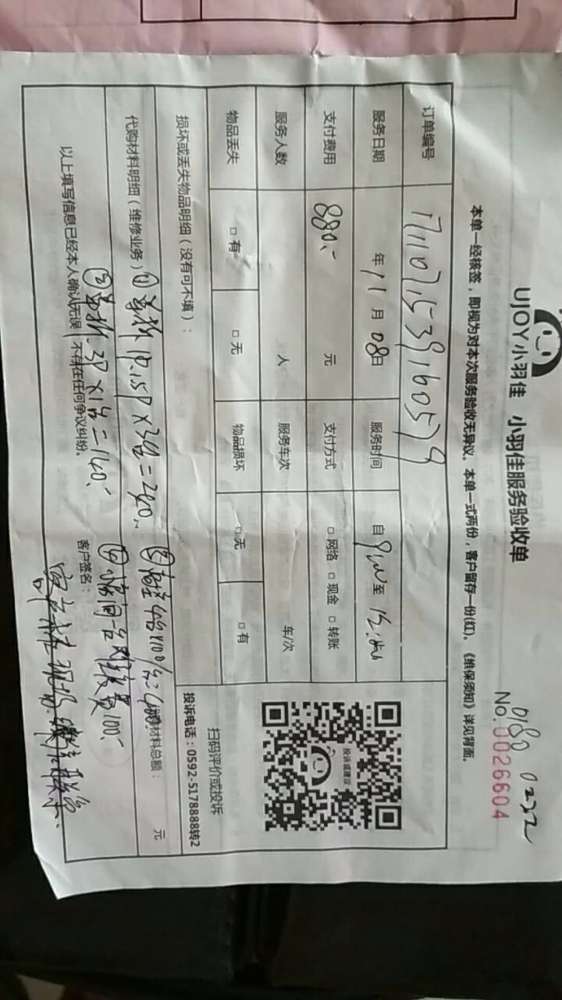 UJOY小羽佳 小羽佳服务验收单
0180 0232
No.0026604
本单一经核签，即视为对本次服务验收无异议。本单一式两份，客户留存一份(红)。《维保须知》详见背面。
订单编号 1711071539160579
服务日期 年 11 月 08日 服务时间 自 至
支付费用 880.- 元 支付方式 □ 网络 □ 现金 □ 转账
服务人数 人 服务车次 车/次
物品丢失 □ 有 □ 无 物品损坏 □ 无 □ 有
损坏或丢失物品明细（没有可不填）：
扫码评价或投诉
投诉电话：0592-5178888转2
代购材料明细（维修业务）① 1.5P×3台=240.- 材料总额： 元
② 3P×1台=140.-
100.-
以上填写信息已经本人确认无误，不存在任何争议纠纷。 客户签名：
投诉或建议